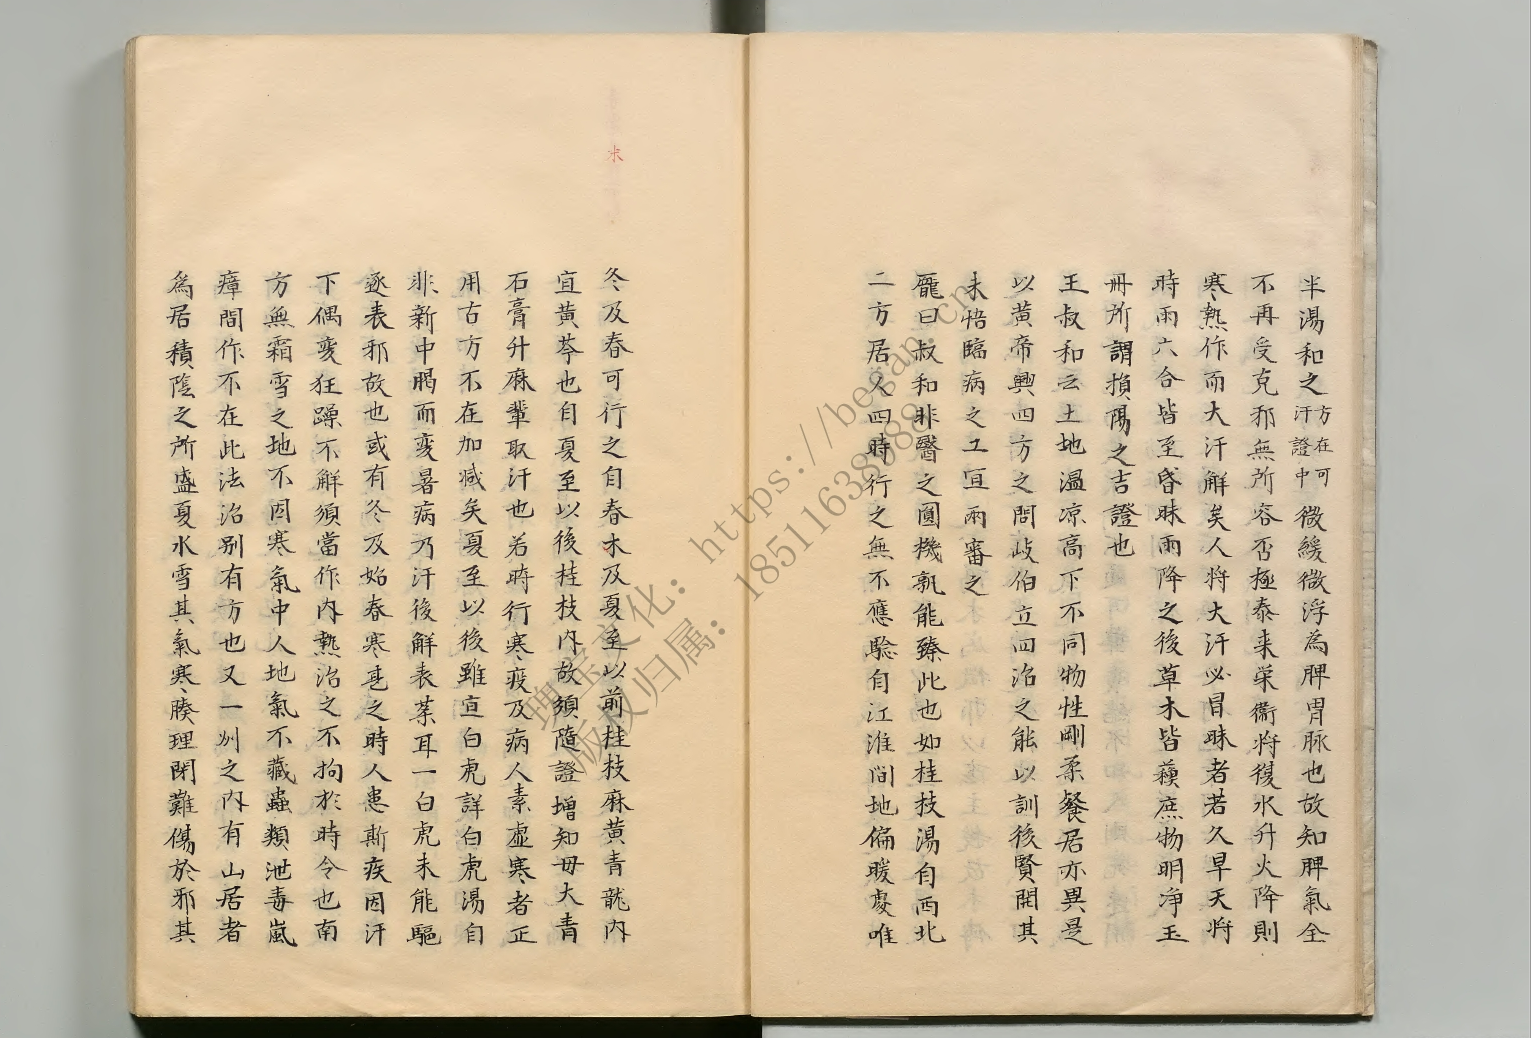 半湯和之方在可汗證中微緩微浮為脾胃脉也故知脾氣全
不再受克邪無所容否極泰来栄衞将復水升火降則
寒熱作而大汗解矣人将大汗必冒昧者若久旱天将
時雨六合皆至昏昧雨降之後草木皆蘓庶物明净玉
冊所謂損陽之吉證也
王叔和云土地溫凉高下不同物性剛柔餐居亦異是
以黄帝興四方之問歧伯立四治之能以訓後賢開其
未悟臨病之工宜兩審之
龐曰叔和非醫之圓機孰能臻此也如桂枝湯自西北
二方居人四時行之無不應驗自江淮間地偏暖處唯
冬及春可行之自春木及夏至以前桂枝麻黄青龍内
末
宜黄芩也自夏至以後桂枝内故須隨證增知母大青
石膏升麻輩取汗也若時行寒疫及病人素虛寒者正
用古方不在加减矣夏至以後雖宜白虎詳白虎湯自
非新中暍而変暑病乃汗後解表薬耳一白虎未能驅
逐表邪故也或有冬及始春寒甚之時人患斯疾因汗
下偶変狂躁不解須當作内熱治之不拘於時令也南
方無霜雪之地不因寒氣中人地氣不藏蟲類泄毒嵐
瘴間作不在此法治别有方也又一州之内有山居者
為居積陰之所盛夏氷雪其氣寒腠理閉難傷於邪其
理宝文化：https://began.cn
版权归属：18511638888